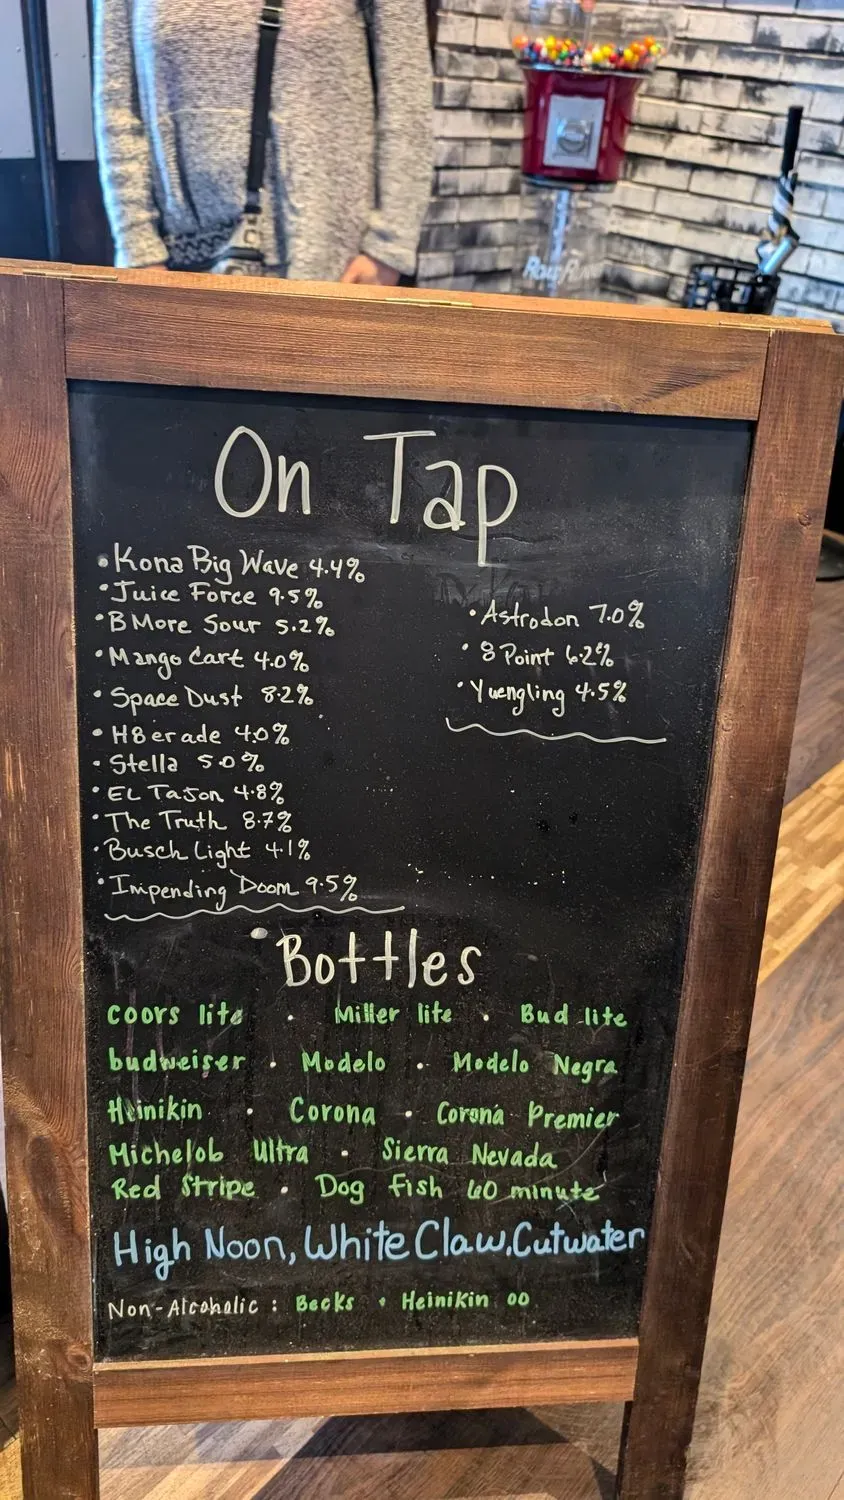 On Tap
• Kona Big Wave 4.4%
• Juice Force 9.5%
• B More Sour 5.2%
• Mango Cart 4.0%
• Space Dust 8.2%
• H8erade 4.0%
• Stella 5.0%
• EL Tajon 4.8%
• The Truth 8.7%
• Busch Light 4.1%
• Impending Doom 9.5%
• Astrodon 7.0%
• 8 Point 6.2%
• Yuengling 4.5%
• Bottles
coors lite • Miller lite • Bud lite
budweiser • Modelo • Modelo Negra
Heinikin • Corona • Corona Premier
Michelob Ultra • Sierra Nevada
Red Stripe • Dog fish 60 minute
High Noon, White Claw, Cutwater
Non-Alcoholic : Becks • Heinikin 00